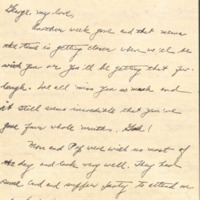 my love,
Another week gone and that means
the time is getting closer when we'll be
with you or you'll be getting that fur-
lough. We all miss you so much and
it still seems incredible that you've
gone four whole months, God!
Mom and Pop were with us most of
the day and look very well. They have
some card and supper party to attend on